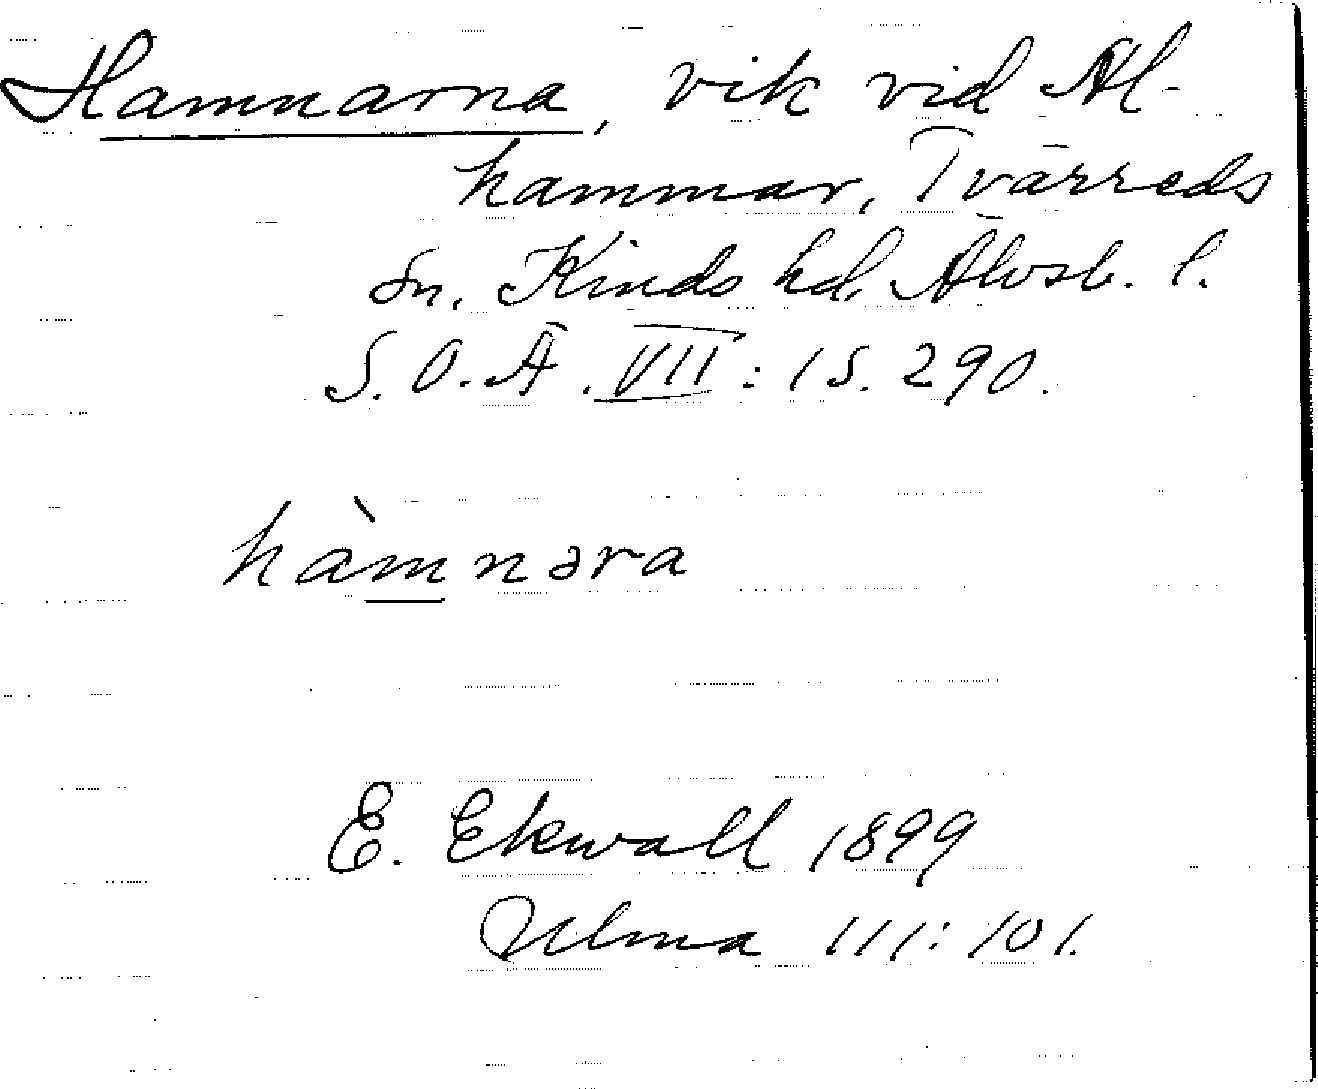 Hamnarna, vik vid Al-
hammar, Tvärreds
sn, Kinds hd, Älvsb. l.
S.O.Ä. VII: 1 S. 290.
hàmnəra
E. Ekwall 1899
Ulma 111:101.